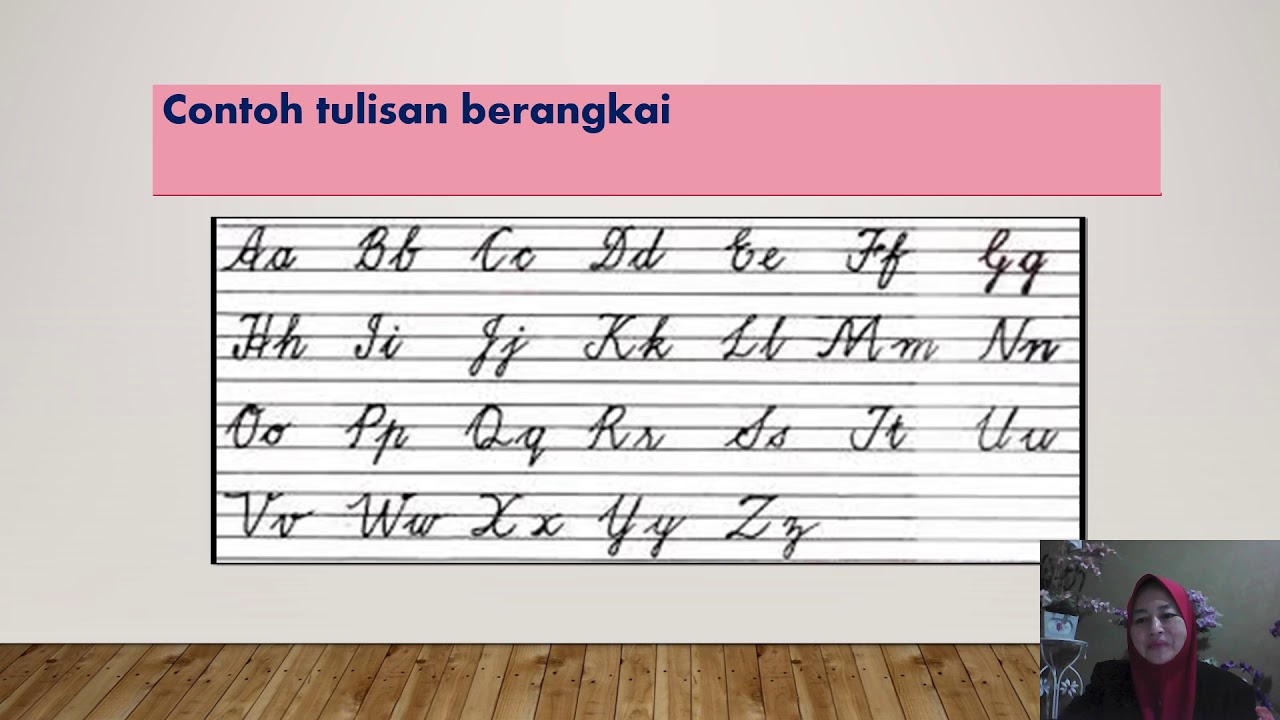 Contoh tulisan berangkai
Aa Bb Cc Dd Ee Ff Gg
Hh Ii Jj Kk Ll Mm Nn
Oo Pp Qq Rr Ss Tt Uu
Vv Ww Xx Yy Zz